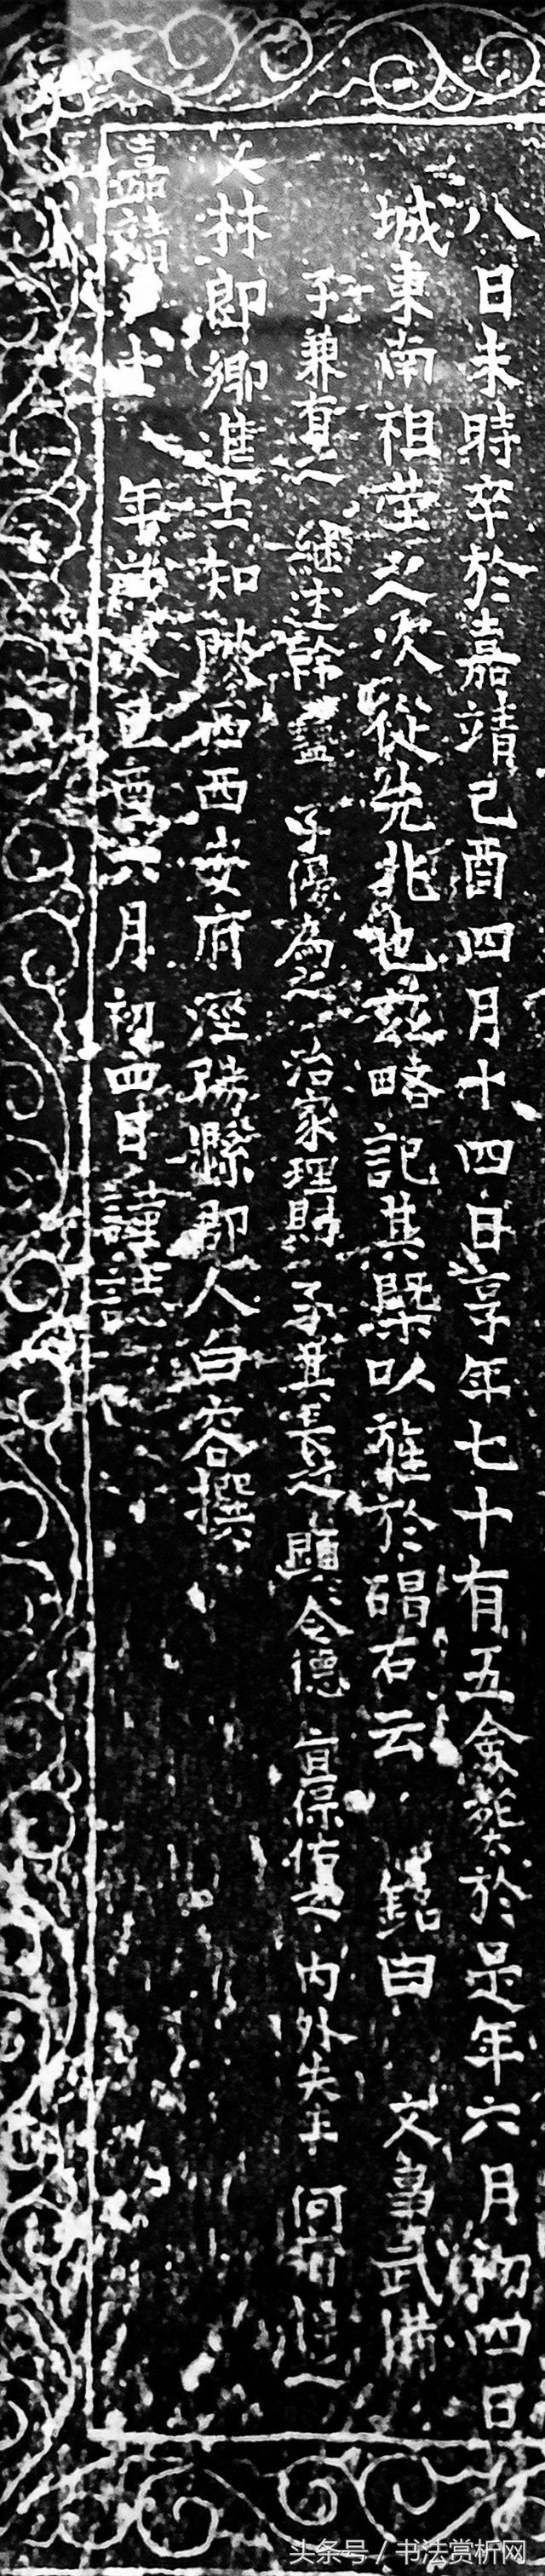 八日未時卒於嘉靖己酉四月十四日享年七十有五僉葬於是年六月初四日
城東南祖塋之次從先兆也玆略記其槩以旌於碣右云 銘曰 文事武備
子兼有之 繼述幹蠱 子優為之 治家理財 子其長之 令德 宜保佑之 内外失 何有
文林郎鄉進士知陝西西安府涇陽縣郡人白容撰
嘉靖 年歲次己酉六月初四日謹誌
头条号 / 书法赏析网